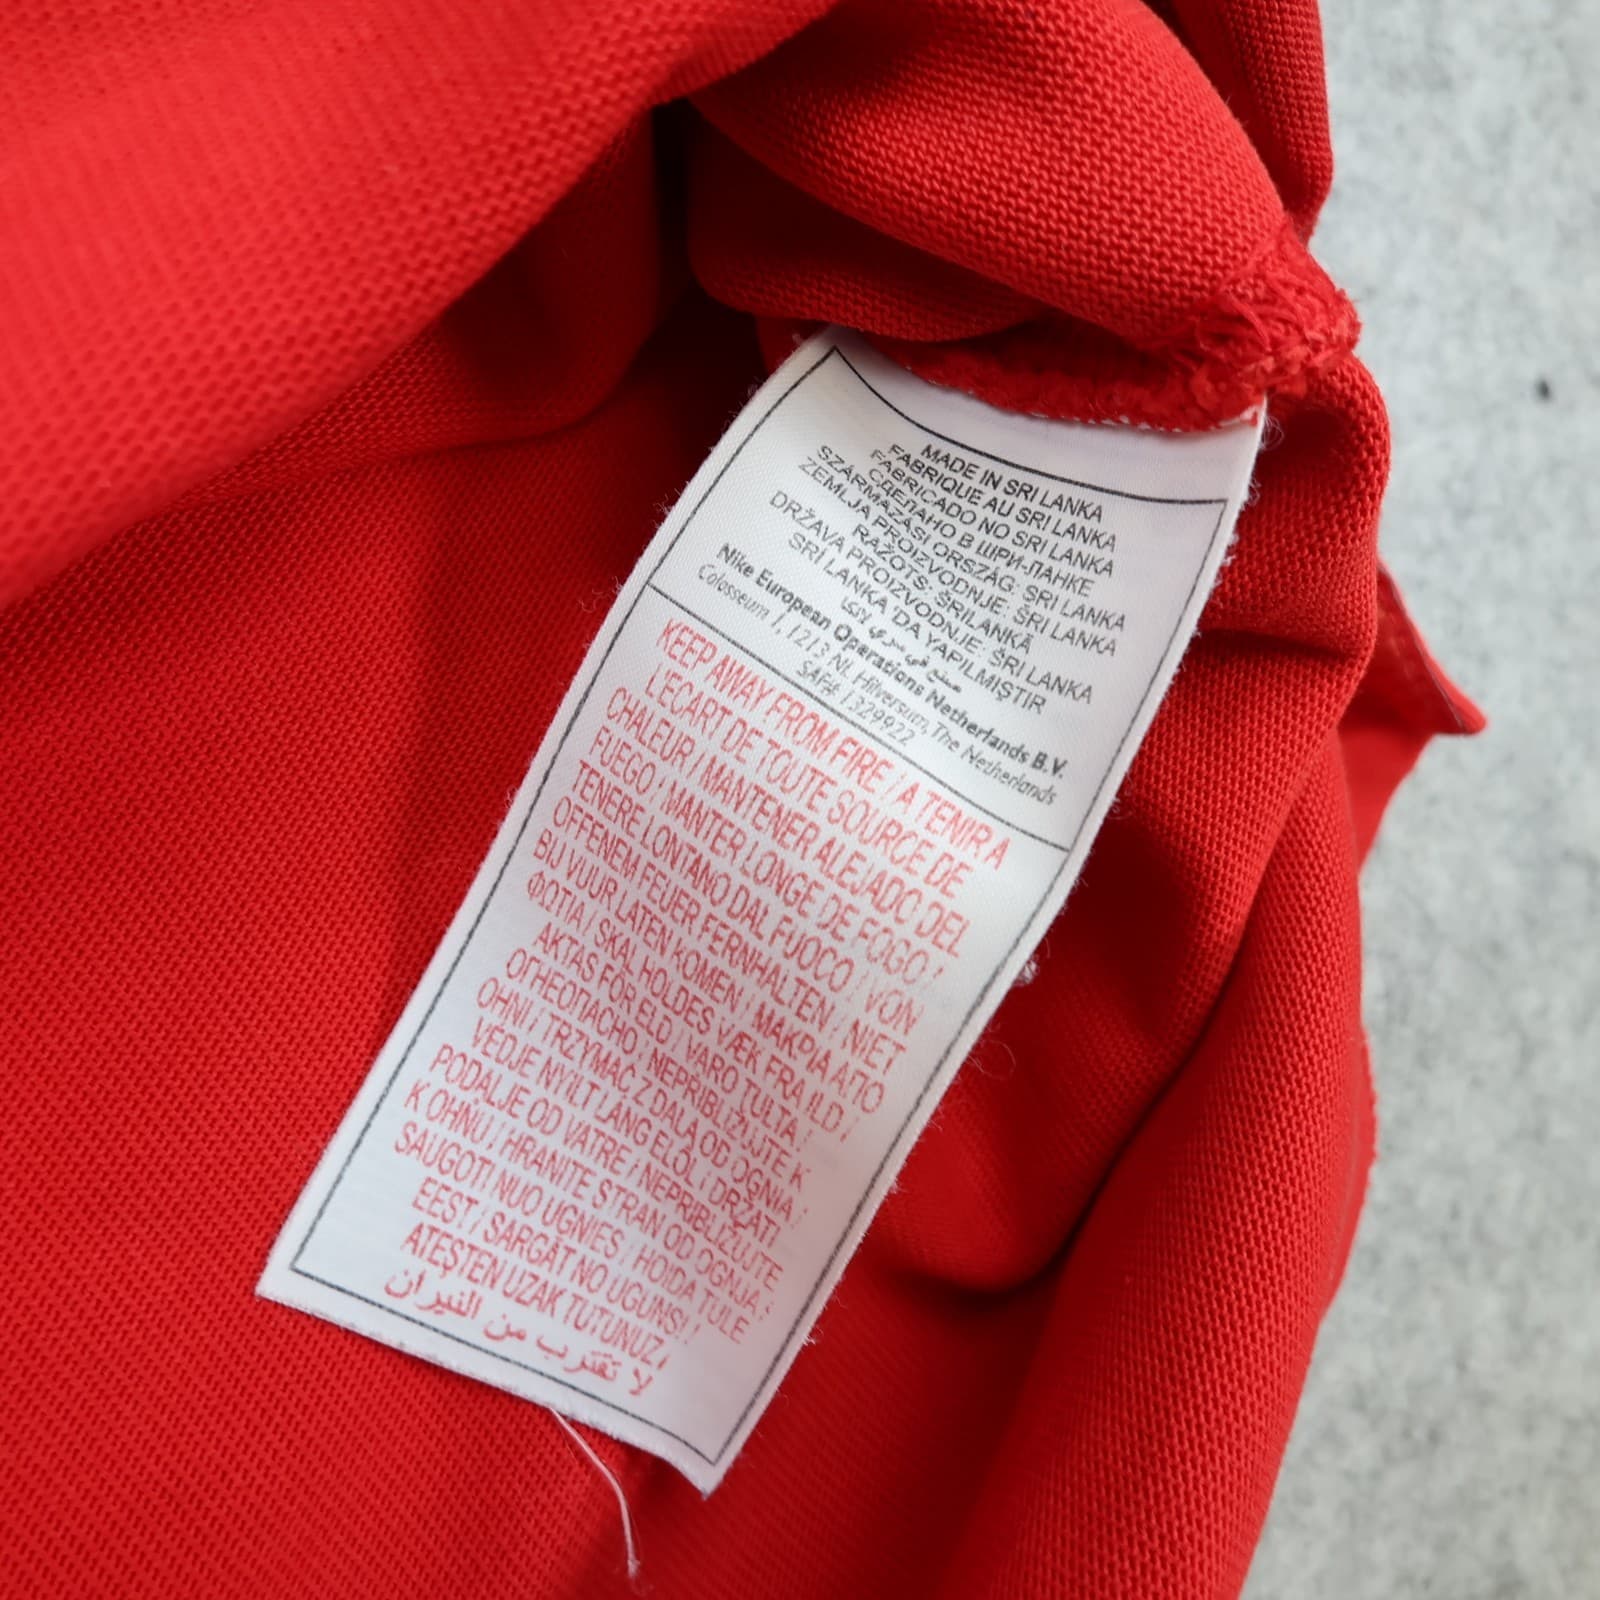 MADE IN SRI LANKA
FABRIQUE AU SRI LANKA
FABRICADO NO SRI LANKA
СДЕЛАНО В ШРИ-ЛАНКЕ
SZÁRMAZÁSI ORSZÁG: SRI LANKA
ZEMLJA PROIZVODNJE: ŠRI LANKA
RAŽOTS: ŠRILANKĀ
DRŽAVA PROIZVODNJE: ŠRI LANKA
SRİ LANKA 'DA YAPILMIŞTIR
صنع في سري لانكا
Nike European Operations Netherlands B.V.
Colosseum 1, 1213 NL Hilversum, The Netherlands
SAF# 1329922
KEEP AWAY FROM FIRE / A TENIR A
L'ECART DE TOUTE SOURCE DE
CHALEUR / MANTENER ALEJADO DEL
FUEGO / MANTER LONGE DE FOGO /
TENERE LONTANO DAL FUOCO / VON
OFFENEM FEUER FERNHALTEN / NIET
BIJ VUUR LATEN KOMEN / ΜΑΚΡΙΑ ΑΠΟ
ΦΩΤΙΑ / SKAL HOLDES VÆK FRA ILD /
AKTAS FÖR ELD / VARO TULTA /
ОГНЕОПАСНО / NEPRIBLIŽUJTE K
OHNI / TRZYMAĆ Z DALA OD OGNIA /
VÉDJE NYÍLT LÁNG ELŐL / DRŽATI
PODALJE OD VATRE / NEPRIBLIZUJTE
K OHNU / HRANITE STRAN OD OGNJA /
SAUGOTI NUO UGNIES / HOIDA TULE
EEST / SARGĀT NO UGUNS! /
ATEŞTEN UZAK TUTUNUZ /
لا تقترب من النيران